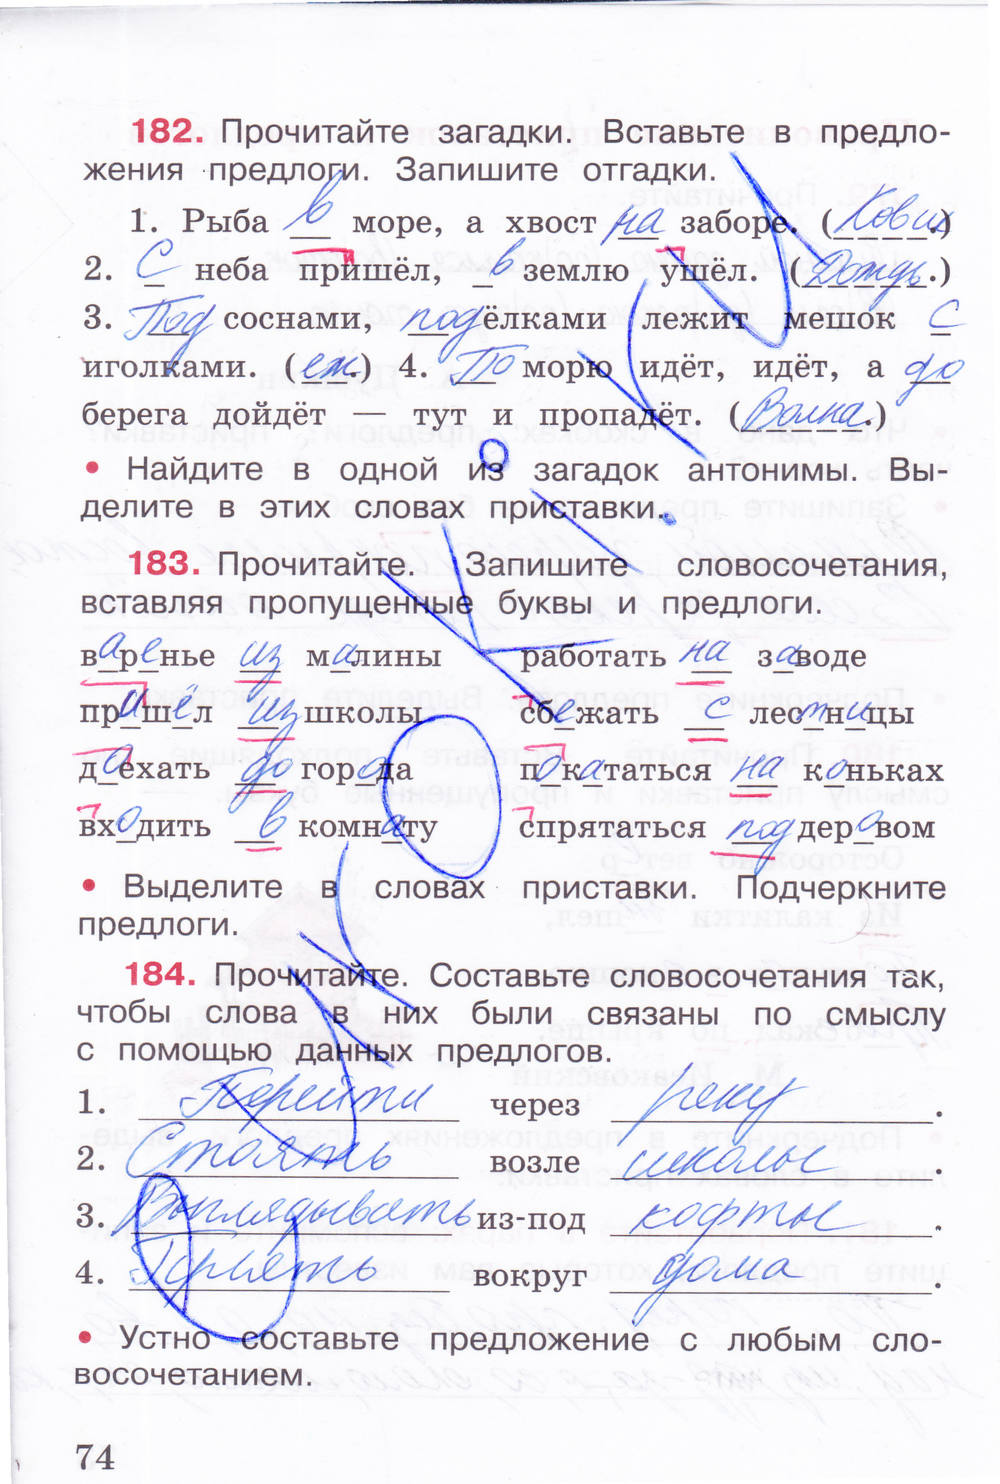 182. Прочитайте загадки. Вставьте в предло-
жения предлоги. Запишите отгадки.
1. Рыба в море, а хвост на заборе. (Ковш.)
2. С неба пришёл, в землю ушёл. (Дождь.)
3. Под соснами, под ёлками лежит мешок с
иголками. (еж.) 4. По морю идёт, идёт, а до
берега дойдёт — тут и пропадёт. (Волна.)
• Найдите в одной из загадок антонимы. Вы-
делите в этих словах приставки.
183. Прочитайте. Запишите словосочетания,
вставляя пропущенные буквы и предлоги.
варенье из малины работать на заводе
пришёл из школы сбежать с лестницы
доехать до города покататься на коньках
входить в комнату спрятаться под деревом
• Выделите в словах приставки. Подчеркните
предлоги.
184. Прочитайте. Составьте словосочетания так,
чтобы слова в них были связаны по смыслу
с помощью данных предлогов.
1. Перейти через реку.
2. Стоять возле школы.
3. Выглядывать из-под кофты.
4. вокруг дома.
• Устно составьте предложение с любым сло-
восочетанием.
74